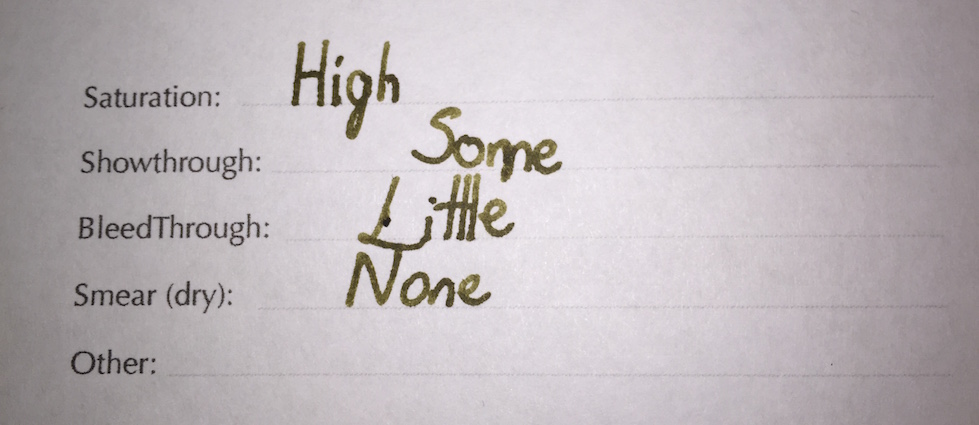 Saturation: High
Showthrough: Some
BleedThrough: Little
Smear (dry): None
Other: